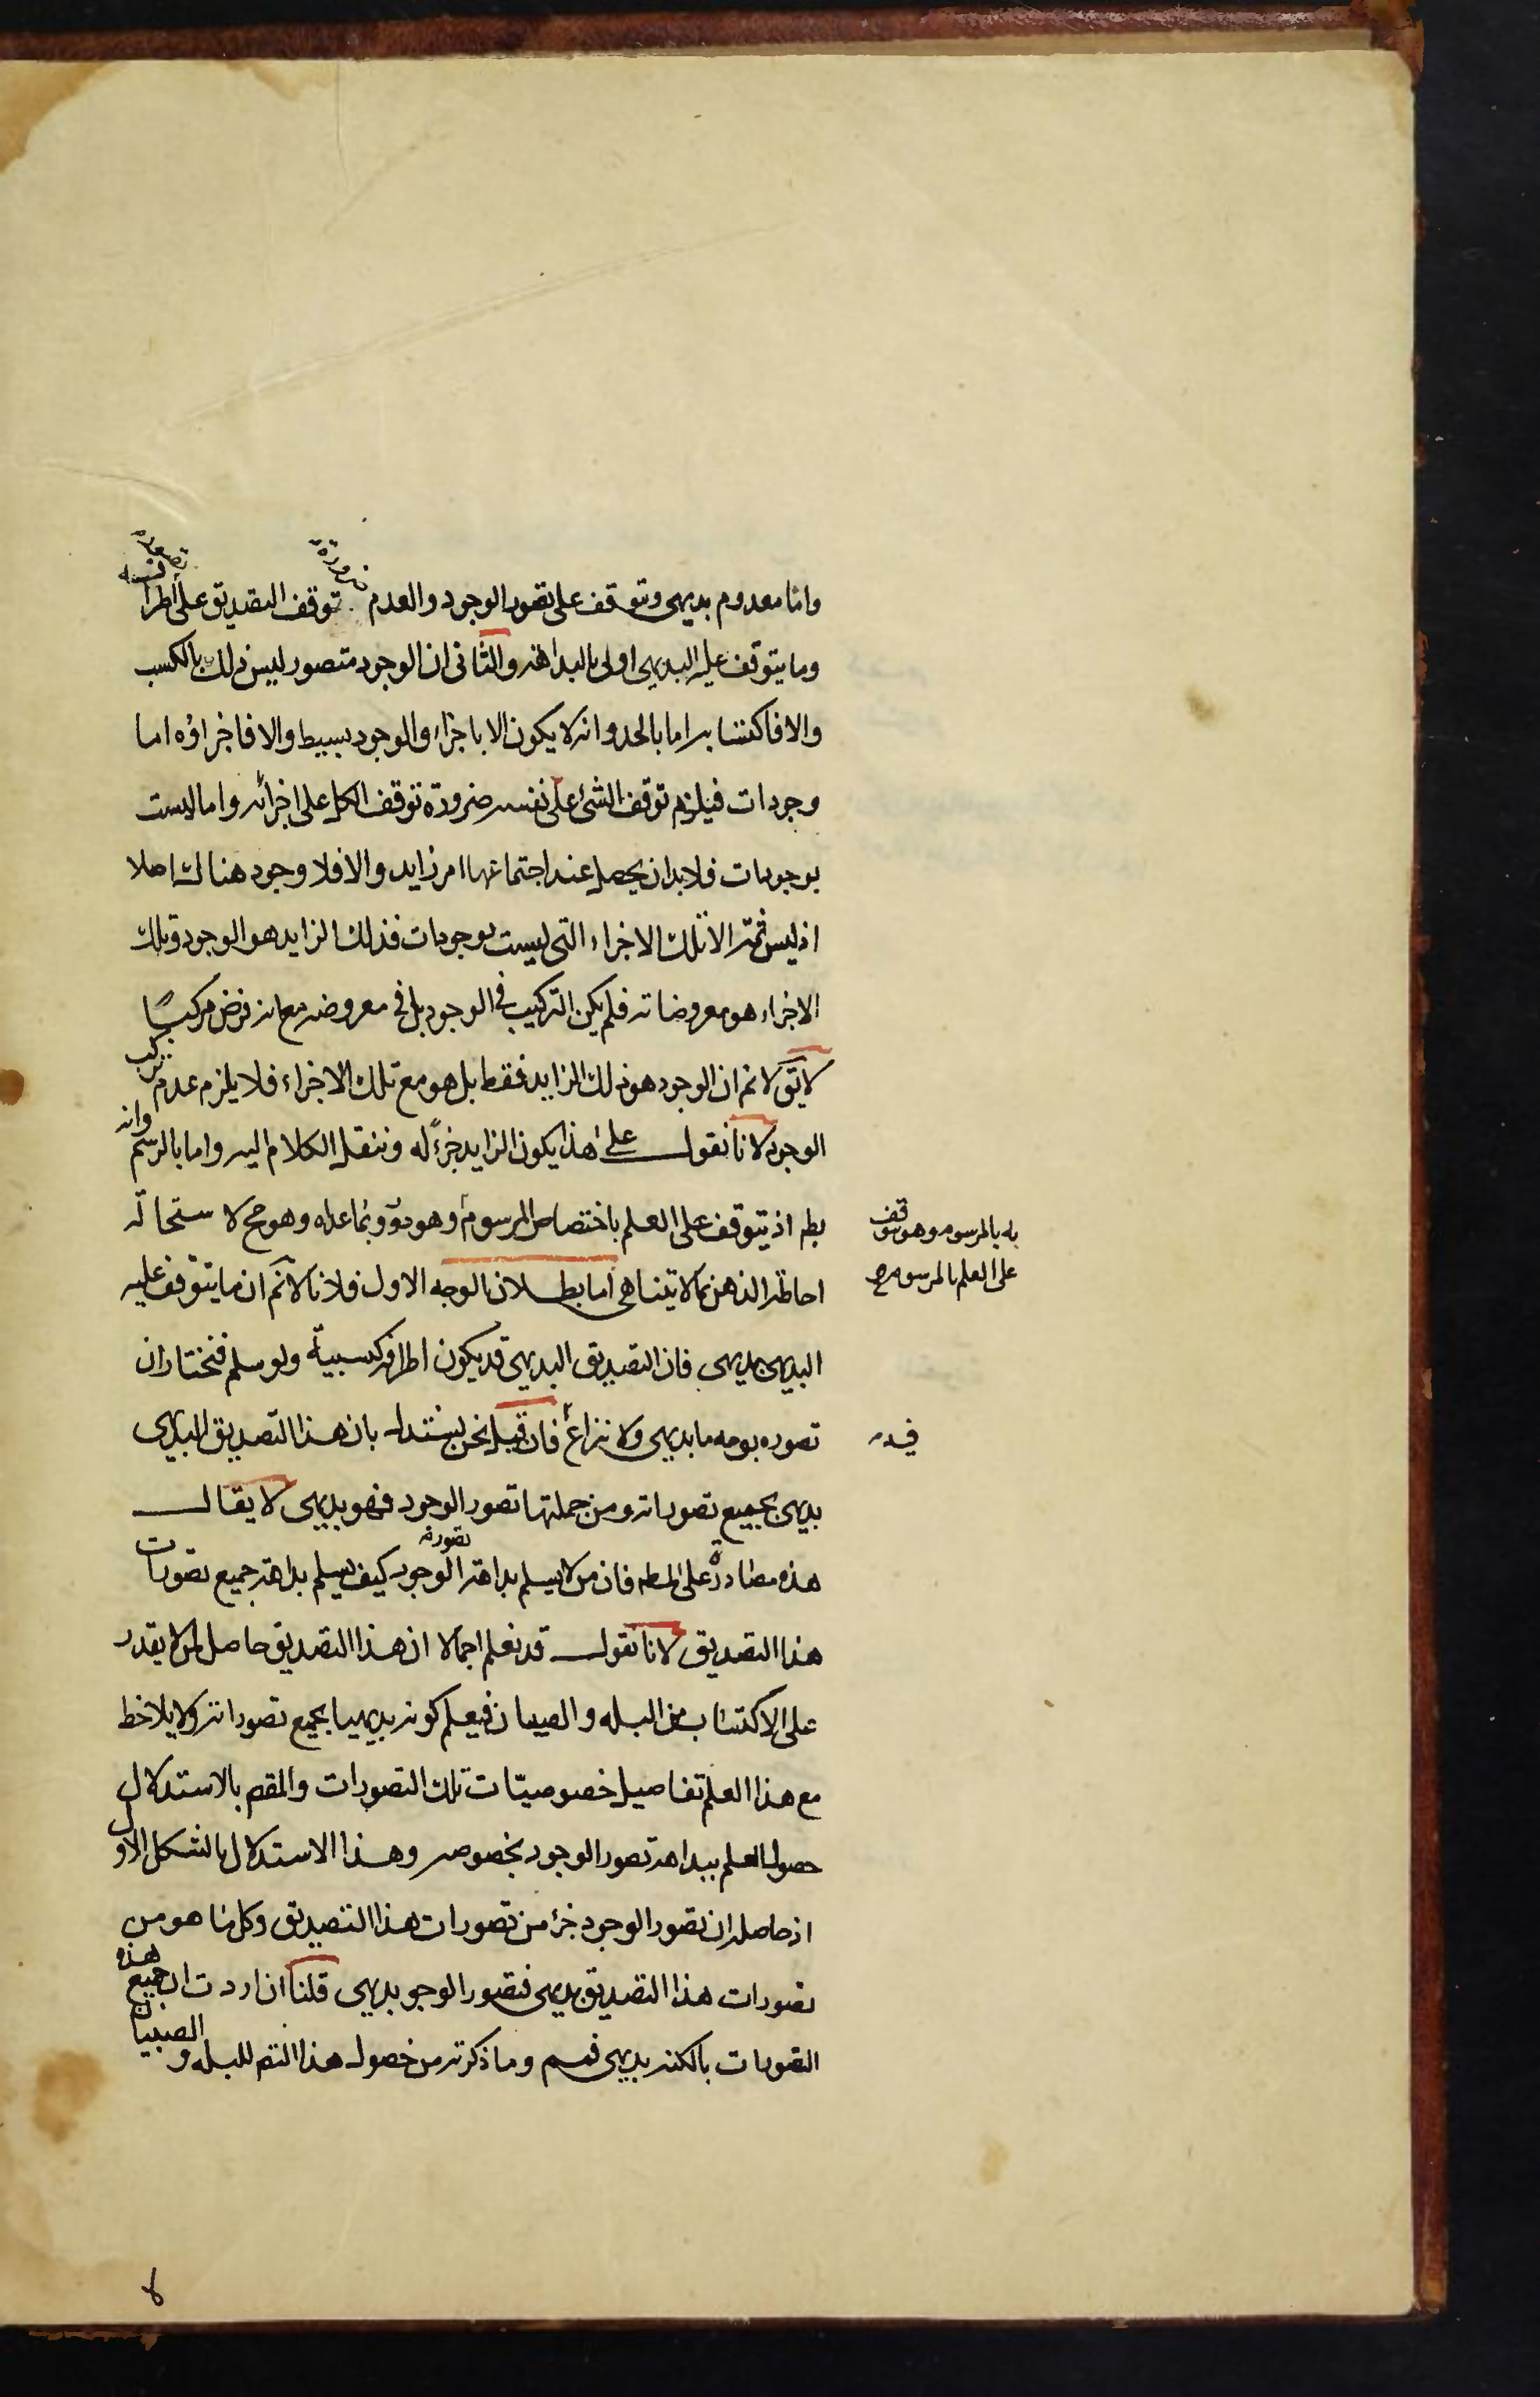 واما معدوم بديهى وتتوقف على تصور الوجود والعدم ضرورة توقف التصديق على تصور اطرافه
وما يتوقف عليه البديهى اولى بالبداهة والثانى ان الوجود متصور ليس ذلك بالكسب
والا فاكتسابه اما بالحد وانه لا يكون الا باجزاء والوجود بسيط والا فاجزاؤه اما
وجودات فيلزم توقف الشئ على نفسه ضرورة توقف الكل على اجزائه واما ليست
بوجودات فلا بد ان يحصل عند اجتماعها امر زايد والا فلا وجود هناك اصلا
اذ ليس ثمة الا تلك الاجزاء التى ليست بوجودات فذلك الزايد هو الوجود وتلك
الاجزاء هو معروضاته فلم يكن التركيب فى الوجود بل فى معروضه مع انه فرض مركبا
لا يق لا نم ان الوجود هو ذلك الزايد فقط بل هو مع تلك الاجزاء فلا يلزم عدم تركب
الوجود لانا نقول على هذا يكون الزايد جزءً له وننقل الكلام اليه واما بالرسم وانه
بط اذ يتوقف على العلم باختصاص المرسوم وهو دور وبما عداه وهو مح لاستحالة
به بالمرسوم وهو يتوقف
على العلم بالمرسوم صح
احاطة الذهن بما لا يتناهى اما بطلان الوجه الاول فلانا لا نم ان ما يتوقف عليه
البديهى بديهى فان التصديق البديهى قد يكون اطرافه كسبية ولو سلم فنختار ان
تصوره بوجه ما بديهى ولا نزاع فان قيل نحن نستدل بان هذا التصديق البديهى
فيه
بديهى بجميع تصوراته ومن جملتها تصور الوجود فهو بديهى لا يقال
هذه مصادرة على المط فان من لا يسلم بداهة تصور الوجود كيف يسلم بداهة جميع تصورات
هذا التصديق لانا نقول قد نعلم اجمالا ان هذا التصديق حاصل لمن لا يقدر
على الاكتساب من البله والصبيان فيعلم كونه بديهيا بجميع تصوراته ولا يلاحظ
مع هذا العلم تفاصيل خصوصيات تلك التصورات والمقصـ بالاستدلال
حصول العلم ببداهة تصور الوجود بخصوصه وهذا الاستدلال بالشكل الاول
اذ حاصله ان تصور الوجود جزء من تصورات هذا التصديق وكل ما هو من
تصورات هذا التصديق بديهى فتصور الوجو بديهى قلنا ان اردت ان جميع هذه
التصورات بالكنه بديهى فمم وما ذكرته من حصول هذا التصـ للبله و الصبيان